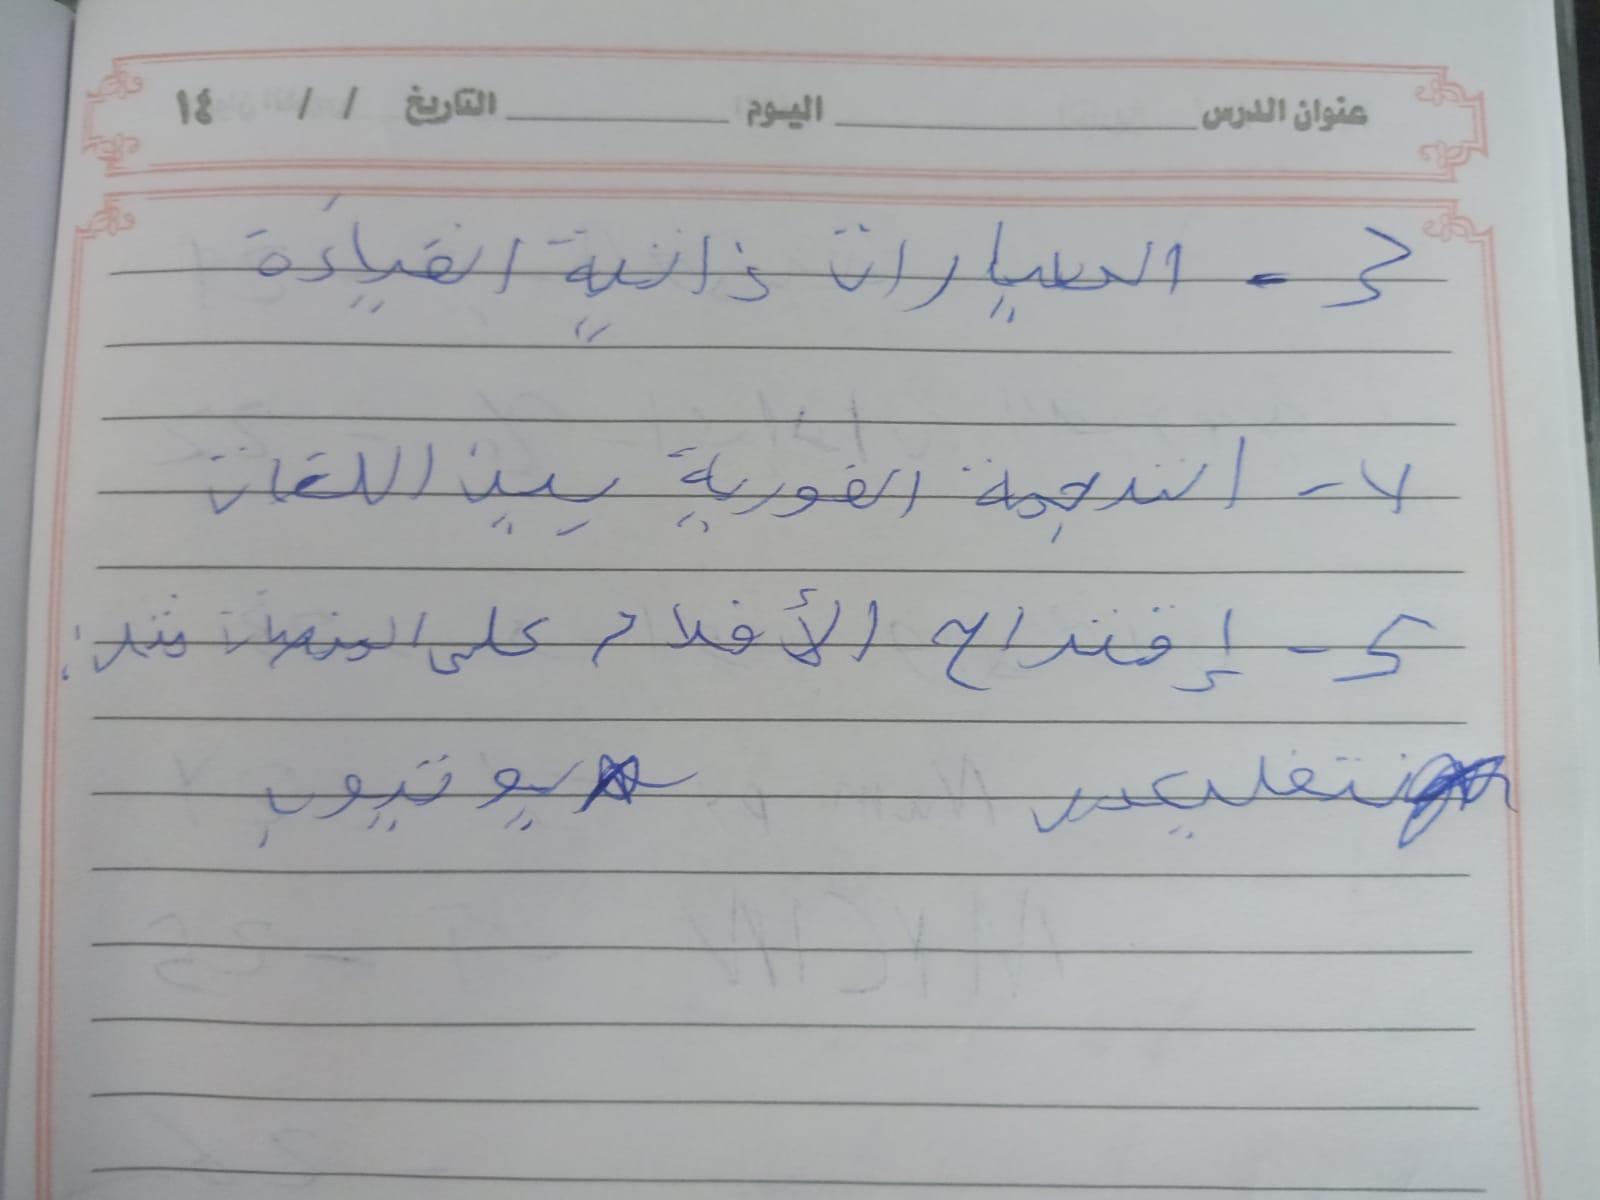 عنوان الدرس اليوم التاريخ / / ١٤
3 - السيارات ذاتية القيادة
٧ - الترجمة الفورية بين اللغات
5 - إقتراح الأفلام على المنصات مثل:
نتفليكس يوتيوب